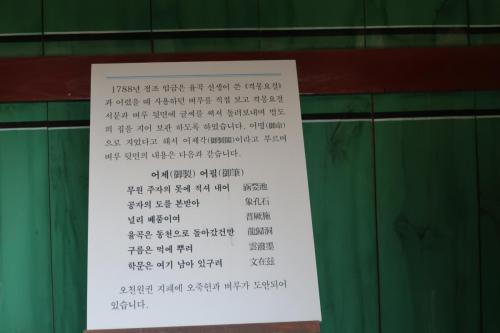 1788년 정조 임금은 율곡 선생이 쓴 《격몽요결》
과 어렸을 때 사용하던 벼루를 직접 보고 격몽요결
서문과 벼루 뒷면에 글씨를 써서 돌려보내며 별도
의 집을 지어 보관 하도록 하였습니다. 어명(御命)
으로 지었다고 해서 어제각(御製閣)이라고 부르며
벼루 뒷면의 내용은 다음과 같습니다.
어제(御製) 어필(御筆)
무원 주자의 못에 적셔 내어 涵婺池
공자의 도를 본받아 象孔石
널리 베품이여 普厥施
율곡은 동천으로 돌아갔건만 龍歸洞
구름은 먹에 뿌려 雲潑墨
학문은 여기 남아 있구려 文在玆
오천원권 지폐에 오죽헌과 벼루가 도안되어
있습니다.